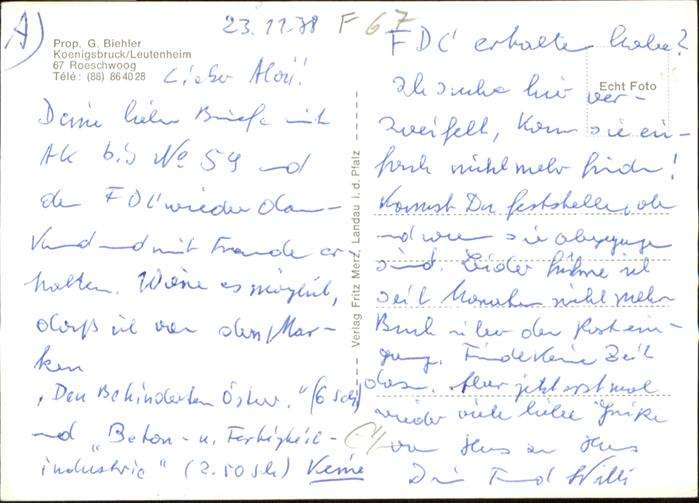 A)
23.11.78
F 67
Prop. G. Biehler
Koenigsbruck/Leutenheim
67 Roeschwoog
Télé: (88) 864028
Lieber Alois!
Deine lieben Briefe mit
AK bis No 59 und
den FDC wieder dan-
kend und mit Freude er-
halten. Wäre es möglich,
daß ich von den Mar-
ken
"Den Behinderten Österr." (6 Sch)
und "Beton- u. Fertigteil-
industrie" (2.50 Sch) Keine
Verlag Fritz Merz, Landau i. d. Pfalz
Echt Foto
FDC erhalten habe?
Ich suche hier ver-
zweifelt, kann sie ein-
fach nicht mehr finden!
Kannst Du feststellen, ob
und wann sie abgegangen
sind. Leider führe ich
seit Monaten nicht mehr
Buch über den Postein-
gang. Finde keine Zeit
dazu. Aber jetzt erst mal
wieder viele liebe Grüße
von Haus zu Haus
Dein Freund Willi